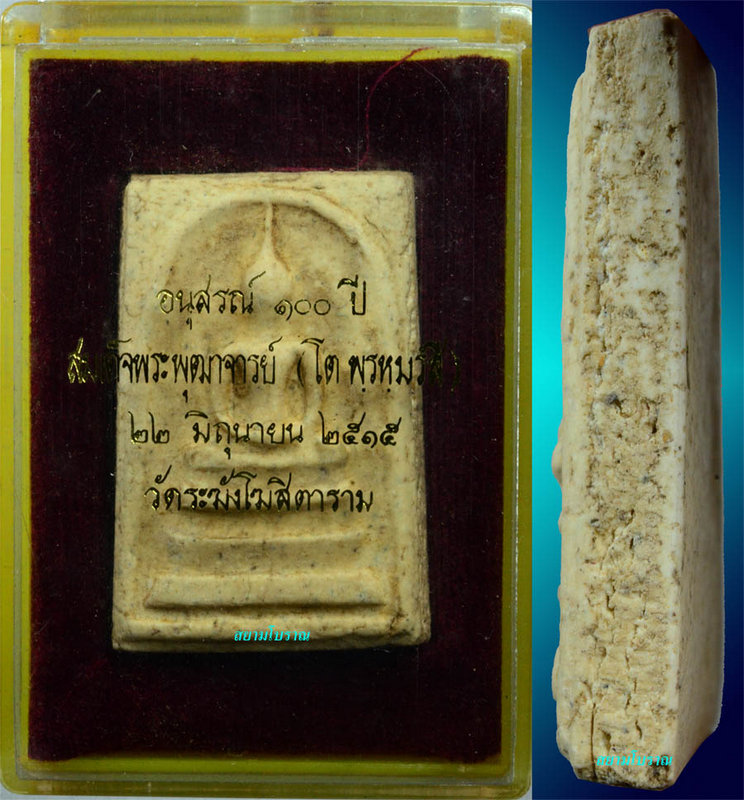 อนุสรณ์ ๑๐๐ ปี
สมเด็จพระพุฒาจารย์ (โต พฺรหฺมรํสี)
๒๒ มิถุนายน ๒๕๑๕
วัดระฆังโฆสิตาราม
สยามโบราณ
สยามโบราณ